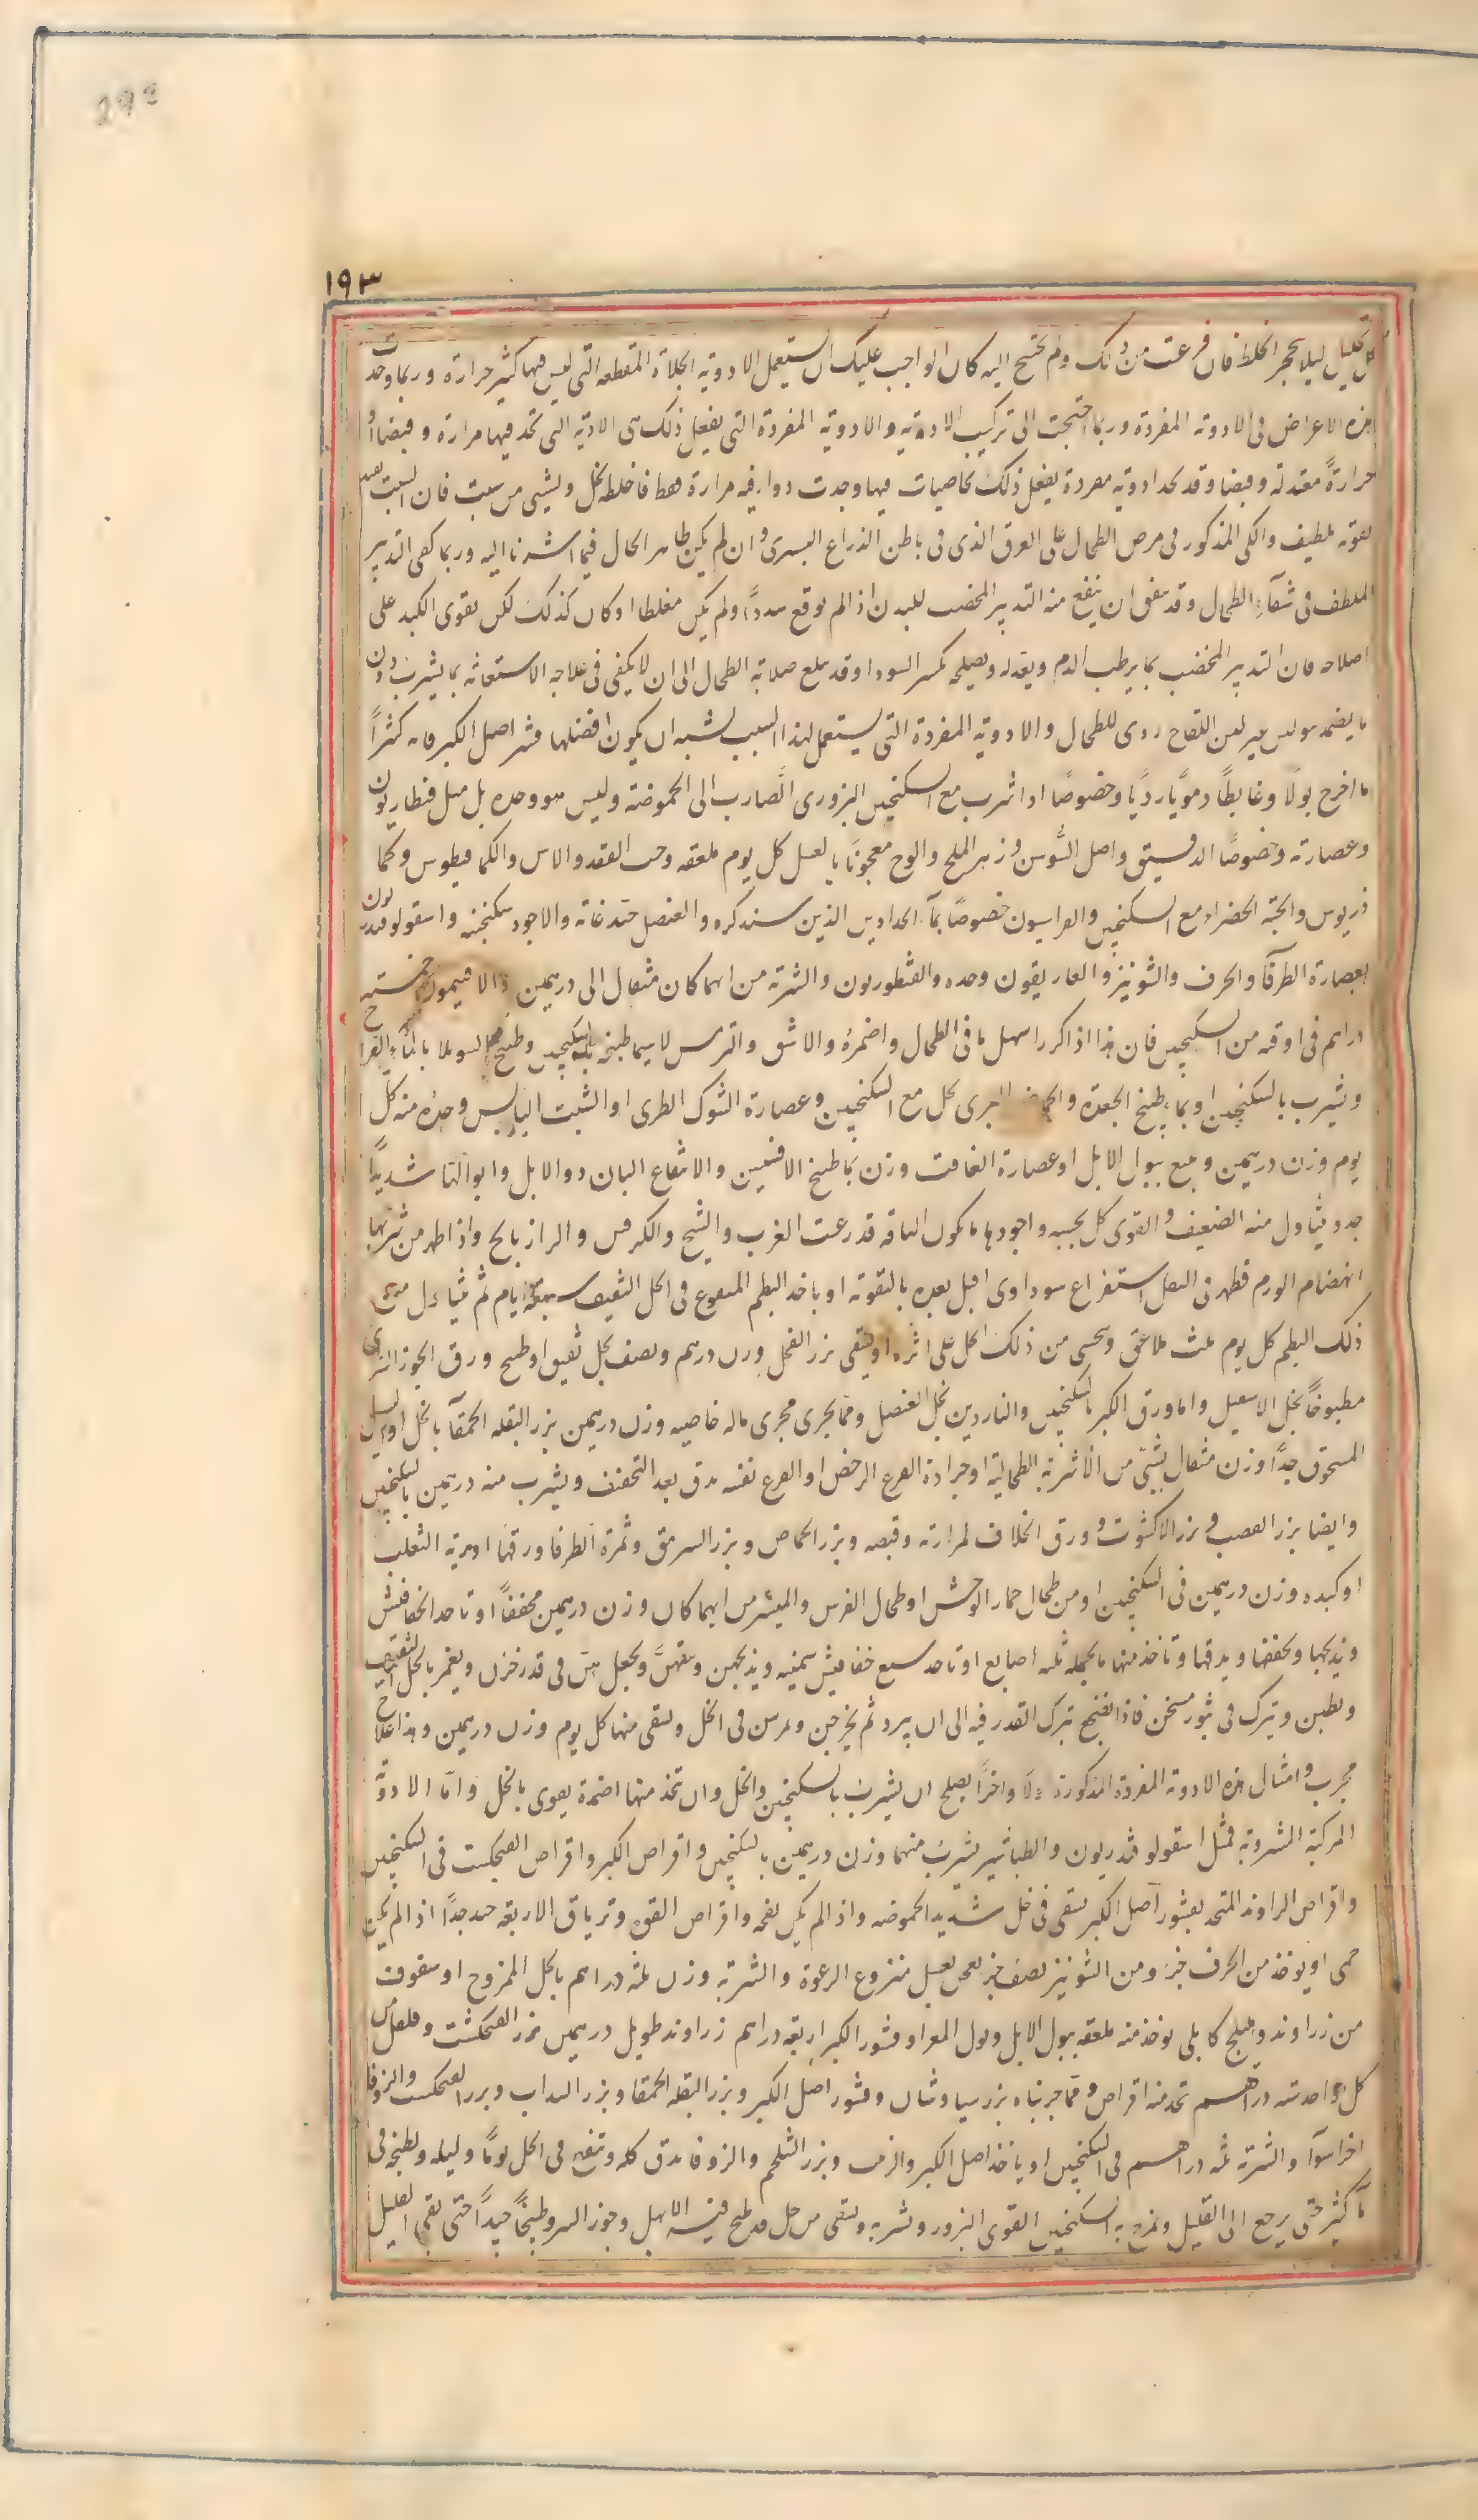 ١٩٣
كل تحليل ليلا يحجر الخلط فان فرغت من ذلك ولم يحتج اليه كان الواجب عليك ان يستعمل الادوية الجلاة المقطعه التي ليس فيها كثير حرارة وربما وجدت
هذه الاعراض فى الادوية المفردة وربما احتجت الى تركيب الادوية والادوية المفردة التي يفعل ذلك هى الادوية التي تجد فيها مرارة وقبضا او
حرارةً معتدلة وقبضا وقد تجد ادوية مفردة يفعل ذلك بخاصيات فيها وجدت دوا فيه مرارة فقط فاخلطه بخل وبشيى من شبت فان الشبت يعيد
لقوته بلطيف والكى المذكور فى مرض الطحال على العرق الذى فى باطن الذراع اليسرى وان لم يكن ظاهر الحال فيما اشرنا اليه وربما كفى التدبير
الملطف فى شفآء الطحال وقد يتفق ان ينتفع منه التدبير المخصب للبدن اذا لم يوقع سدداً ولم يكن مغلظا اوكان كذلك لكن يقوى الكبد على
اصلاحه فان التدبير المخصب بما يرطب الدم ويعدله ويصلحه يكسر السودا وقد يبلغ صلابة الطحال الى ان لا يكفى فى علاجه الاستعانه بما يشرب دون
ما يضمد مولس غير لبن اللقاح ردى للطحال والادوية المفردة التي يستعمل لهذا السبب يشبه ان يكون افضلها قشر اصل الكبر فانه كثيراً
ما اخرج بولاً وغايطاً دموياً رديا وخصوصًا اذا شرب مع السكنجبين البزورى الضارب الى الحموضة وليس هو وحده بل مثل قنطاريون
وعصارته وخصوصًا الدقيق واصل السَّوسن وزهر الملح والوج معجونًا بالعسل كل يوم ملعقه وحب الفقد والاس والكمافيطوس وكما
ذريوس والحبة الخضراء مع السكنجبين والفراسيون خصوصًا بماء الحدادين الذين سنذكره والعنصل جيد غاية والاجود سكنجبينه واسقولوقندريون
بعصارة الطرفآ والحرف والشونيز والغاريقون وحده والقنطوريون والشربة من ايهما كان مثقال الى درهمين والافتيمون خمسة
دراهم فى اوقيه من السكنجبين فان هذا اذا كرر اسهل ما فى الطحال واضمرهُ والاشق والترمس لاسيما طبيخه بالسكنجبين وطبيخ السوملا بالمآء القراح
ويشرب بالسكنجبين او بماء طبيخ الجعدة البرى بخل مع السكنجبين وعصارة الشوك الطرى او الشبت اليابس وحده منه كل
يوم وزن درهمين ويتبع ببول الابل اوعصارة الغافت وزن بما طبيخ الافسنتين والانتفاع البان دوالابل وابوالها شديداً
جدويتناول منه الضعيف والقوى كل بحسبه واجودها مايكون الناقه قد رعت الغرب والشيح والكرفس والرازيانج واذا ظهر من شربها
انهضام الورم فظهر فى الثفل استفراغ سوداوى اقبل بعده بالتقوية او ياخذ البطم المنقوع فى الخل الثقيف سبعة ايام ثم يتناول من
ذلك البطم كل يوم ثلث ملاعق ويحسى من ذلك الخل على اثره اويسقى بزر الفجل وزن درهم ونصف بخل ثقيق او طبيخ ورق الجوز الترى
مطبوخاً بخل الاسقيل واما ورق الكبر بالسكنجبين والناردين بخل العنصل ومما يجرى مجرى ماله خاصيه وزن درهمين بزر البقله الحمقآ بالخل اوبول
المسحوق جيداً وزن مثقال بشىٍ من الاشربة الطحالية او جرادة القرع الرخص او القرع نفسه يدق بعد التجفيف ويشرب منه درهمين بالسكنجبين
وايضا بزر القصب و بزر الاكشوث و ورق الخلاف لمرارته وقبضه وبزر الحماص وبزر السرمق وثمرة الطرفا ورقها اورية الثعلب
اوكبده وزن درهمين فى السكنجبين اومن طحال حمار الوحش اوطحال الفرس والمهر من ايهما كان وزن درهمين مجففاً اوتاخذ الخفافيش
ويذبحها ويجففها ويدقها وتاخذ منها بالجمله ثلثه اصابع اوتاخذ سبع خفافيش سمينه ويذبحهن وينقهنّ ويجعل هن فى قدر خزف ويغمر بالخل الثقيف
ويطين ويترك فى تنور مسخن فاذا نضج يترك القدر فيه الى ان يبرد ثم يخرجن ويمرس فى الخل ويسقى منها كل يوم وزن درهمين وهذا علاج
مجرب وامثال هذه الادوية المفردة المذكورة اولاً واخراً يصلح ان يشرب بالسكنجبين والخل وان تتخذ منها اضمدة يقوى بالخل واما الادوية
المركبة المشروبة فمثل اسقولوقندريون والطباشير يشرب منهما وزن درهمين بالسكنجبين واقراص الكبر واقراص الفنجنكشت فى السكنجبين
واقراص الراوند المتخذ بقشور اصل الكبر يسقى فى خل شديد الحموضه واذا لم يكن نفخه واقراص القوه وترياق الاربعه جيد جداً اذا لم يكن
حمى اويوخذ من الحرف جزءٌ ومن الشونيز نصف جز يعجن بعسل منزوع الرغوة والشربة وزن ثلثه دراهم بالخل الممزوج او سفوف
من زراوند وهليلج كابلى يوخذ منه ملعقه ببول الابل وبول المعزاو قشور الكبر اربعه دراهم زراوند طويل درهمين بزر الفنجنكشت وفلفل من
كل واحد سته دراهم تتخذ منه اقراص ومما جربناه بزر سياوشان وقشور اصل الكبر وبزر البقله الحمقا وبزر السداب وبزر الفنجنكشت والزوفا
اجزاسوآ والشربة ثلثه دراهم فى السكنجبين اوياخذ اصل الكبر والزفت وبزر الثلجم والزوفا يدق كله وينقع فى الخل يومًا وليله ويطبخ فى
مآ كثير حتى يرجع الى القليل ويمزج به السكنجبين القوى البزور ويشربه ويسقى من خل قد طبخ فيه الابهل وجوز السرو طبخًا جيداً حتى بقى القليل